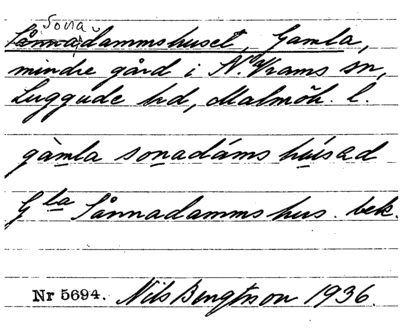 Sona-
Sånnadammshuset, Gamla,
mindre gård i N. Vrams sn,
Luggude hd, Malmöh. l.
gàmla sonadáms húsad
Gla Sånnadammshus. bek.
Nr 5694. Nils Bengtson 1936.